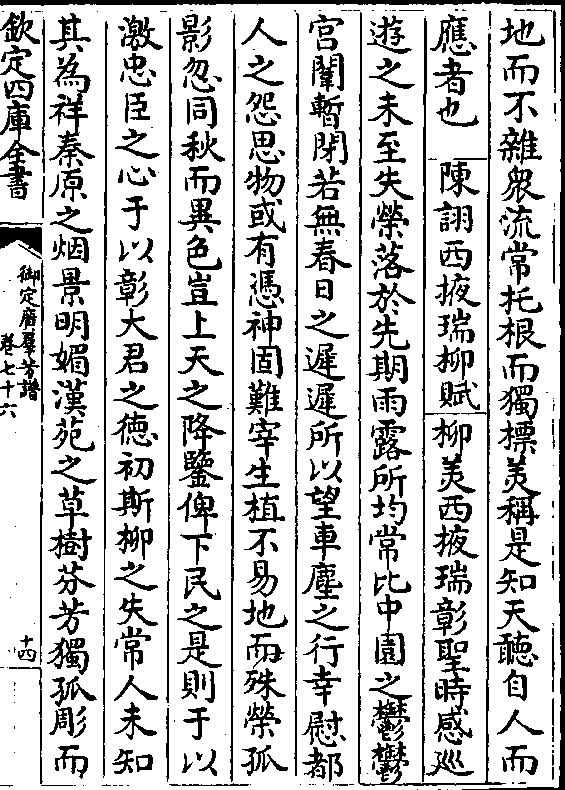 地而不雜衆流常托根而獨標美稱是知天聽自人而
應者也　陳詡西掖瑞柳賦　柳美西掖瑞彰聖時感巡
遊之未至失榮落於先期雨露所均常比中園之鬱鬱
宮闈暫閉若無春日之遲遲所以望車塵之行幸慰都
人之怨思物或有憑神固難宰生植不易地而殊榮孤
影忽同秋而異色豈上天之降鑒俾下民之是則于以
激忠臣之心于以彰大君之德初斯柳之失常人未知
其為祥秦原之烟景明媚漢苑之草樹芬芳獨孤彫而
欽定四庫全書
御定廣羣芳譜
卷七十六
十四